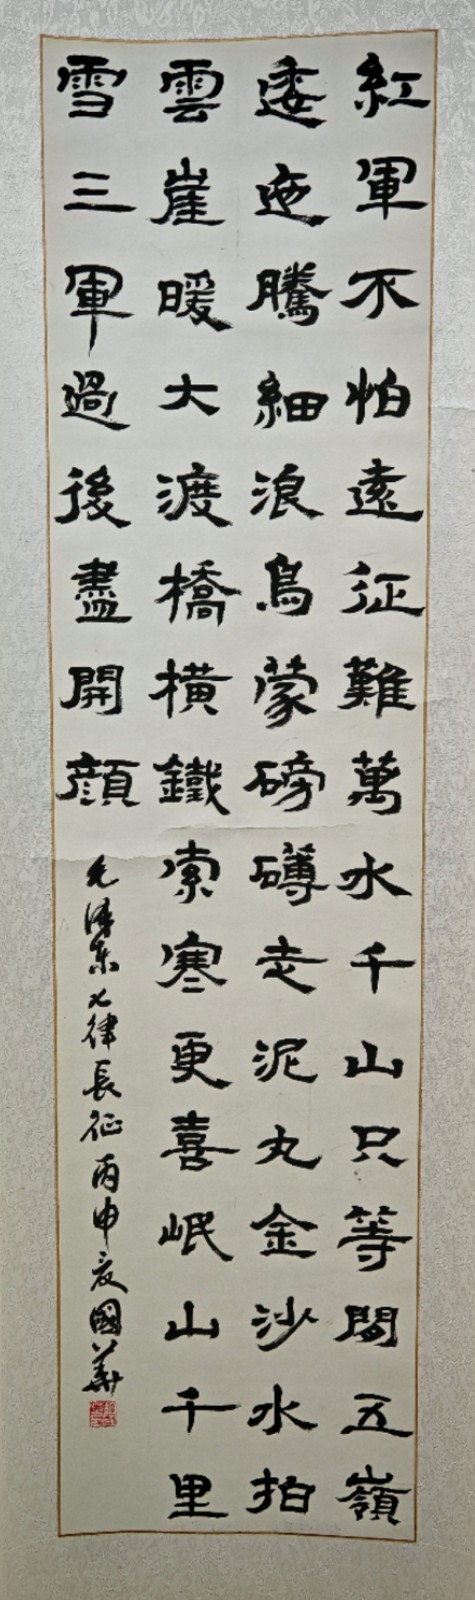 紅軍不怕遠征難萬水千山只等閒五嶺
逶迤騰細浪烏蒙磅礡走泥丸金沙水拍
雲崖暖大渡橋橫鐵索寒更喜岷山千里
雪三軍過後盡開顏
毛澤東七律長征丙申夏國華